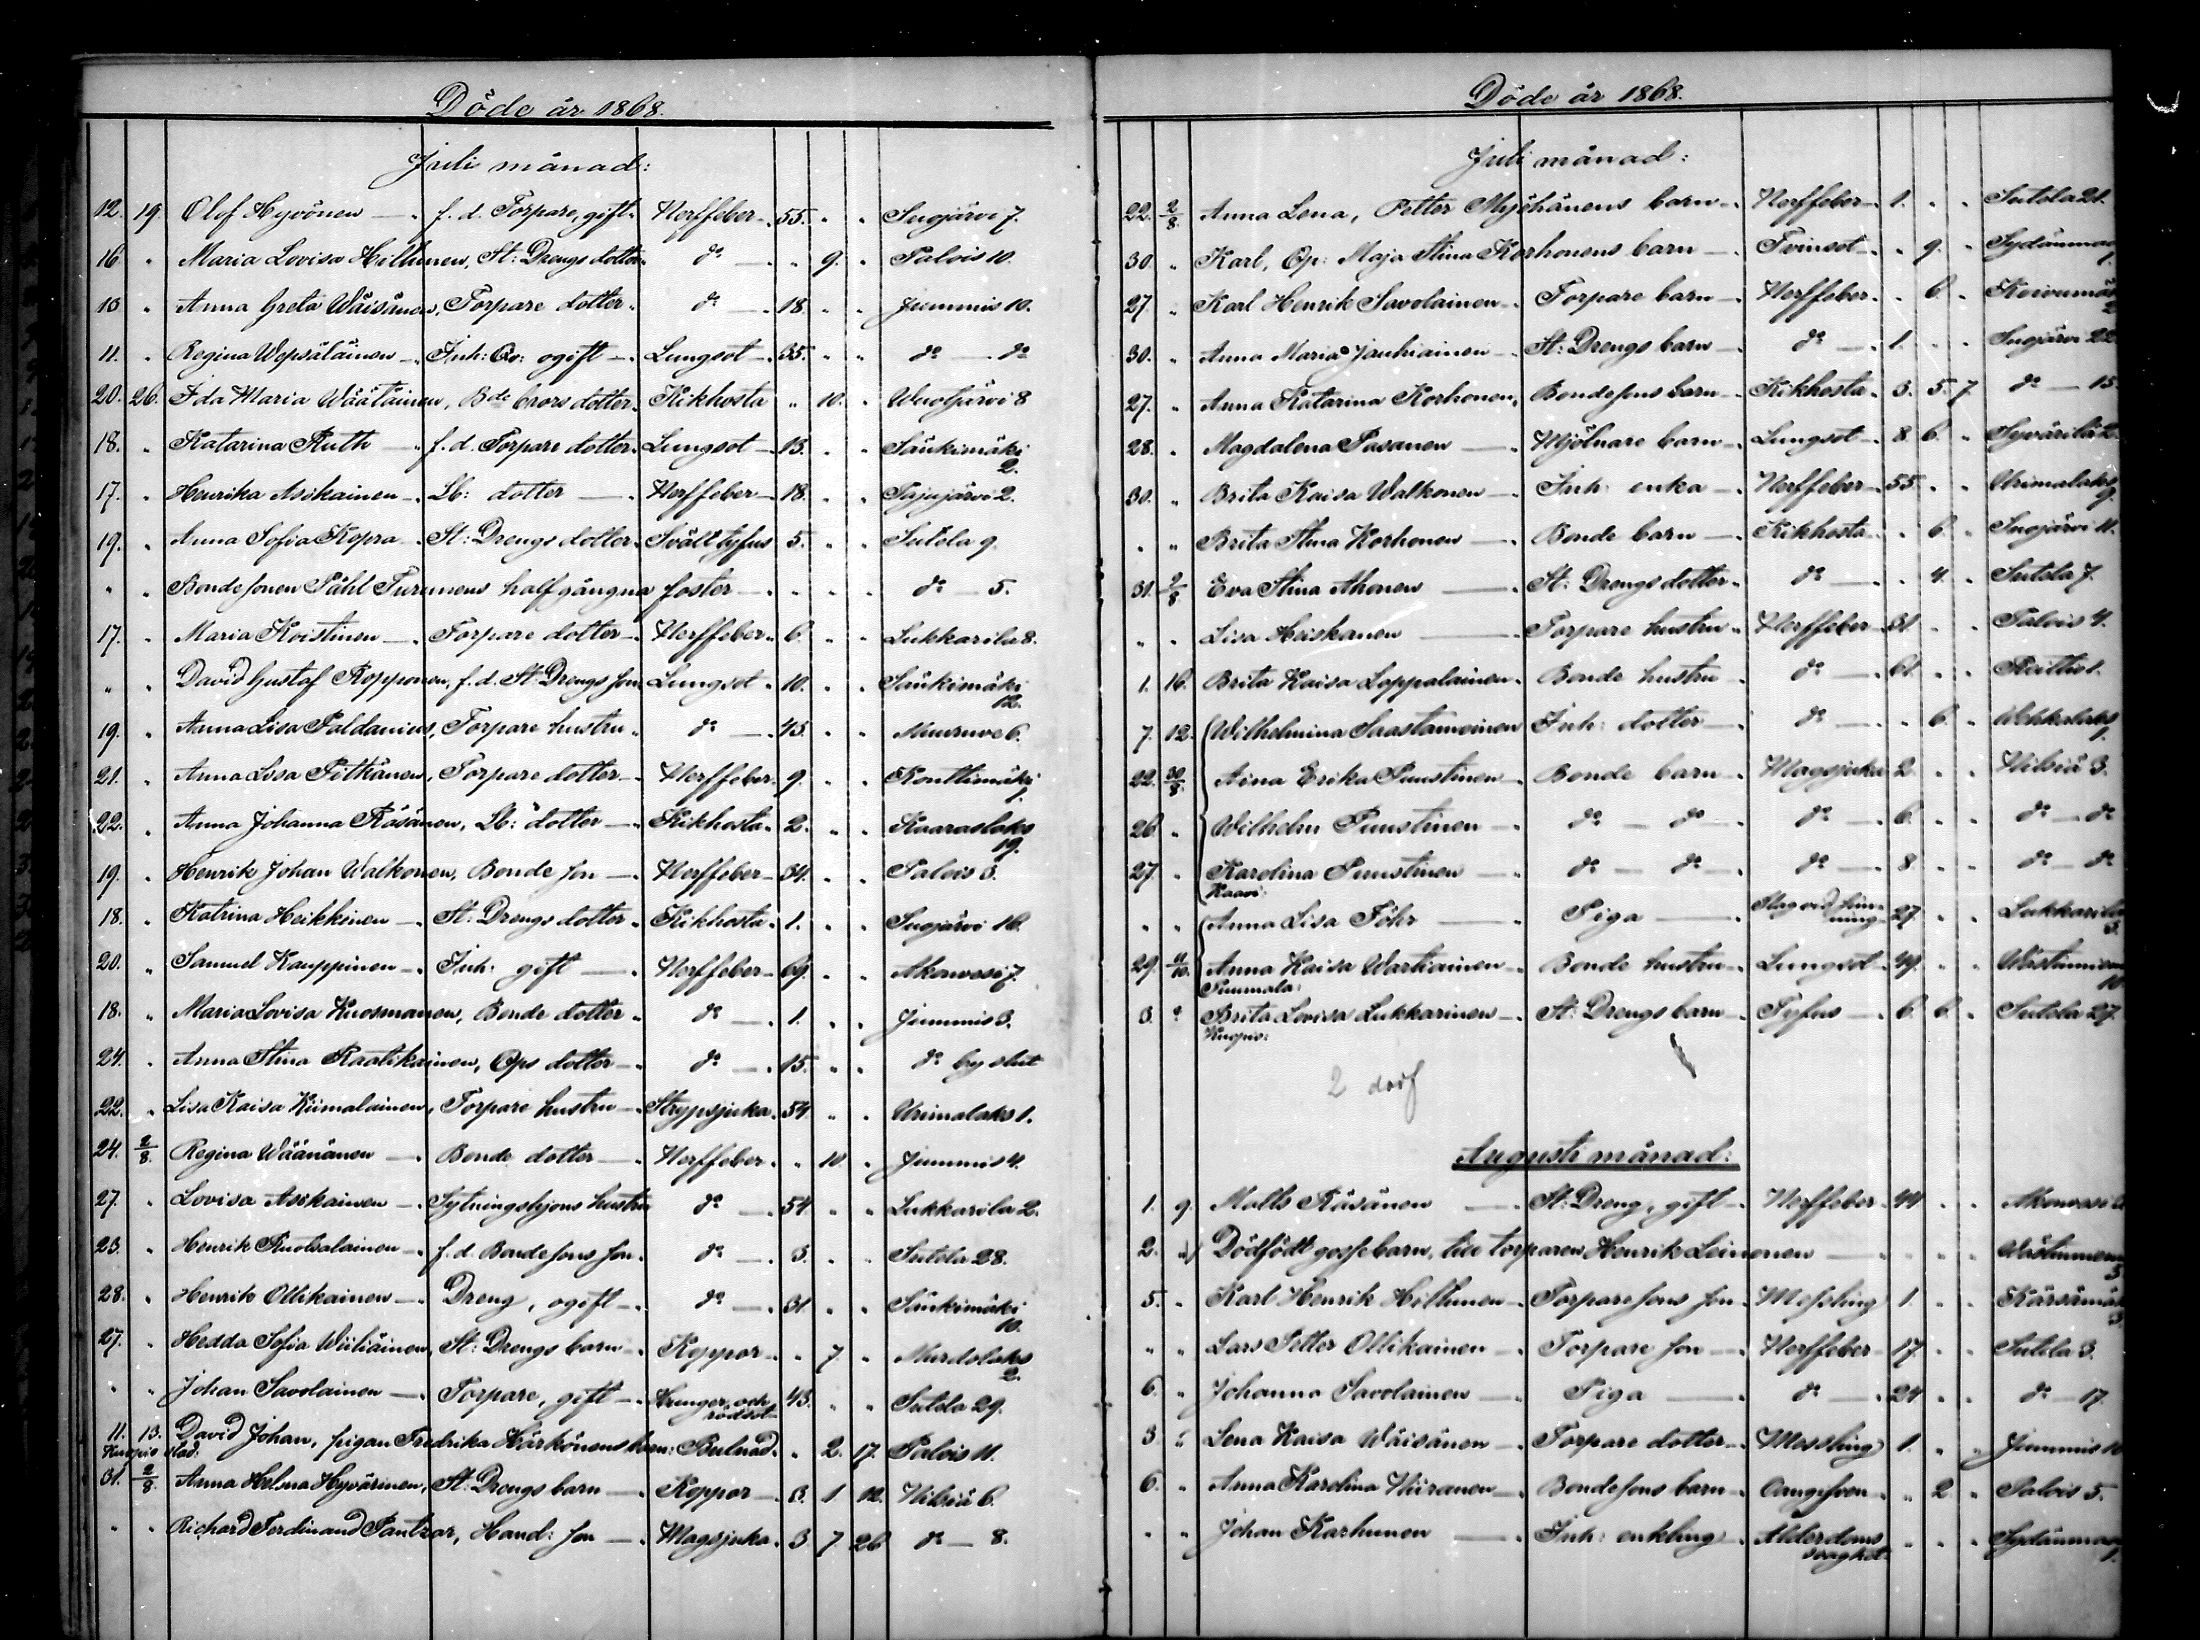 Döde år 1868.
Juli månad:
12. 19. Olof Hyvönen — f. d. Torpare, gift Nerffeber 55. " " Suojärvi 7.
16 " Maria Lovisa Hiltunen, St: Drengs dotter d:o — " 9. " Palois 10.
13 " Anna Greta Wäisänen, Torpare dotter d:o — 18 " " Jummis 10.
11. " Regina Wepsäläinen — Inh: Qv: ogift — Lungsot — 35. " " d:o — d:o
20. 26. Ida Maria Wäätäinen, B:de brors dotter Kikhosta " 10. " Wuotjärvi 8
18. " Katarina Ruth — f. d. Torpare dotter Lungsot — 13. " " Säukimäki 2.
17. " Henrika Asikainen — Lb: dotter — Nerffeber — 18. " " Pajujärvi 2.
19. " Anna Sofia Kopra St: Drengs dotter Svält tyfus 5. " " Sutola 9.
" " Bondesonen Påhl Turunens halfgångna foster — " " " d:o — 5.
17. " Maria Koistinen — Torpare dotter — Nerffeber 6. " " Lukkarila 8.
" " David Gustaf Ropponen, f. d. St: Drengs son Lungsot 10. " " Säukimäki 12.
19. " Anna Lisa Paldanius, Torpare hustru d:o — 45. " " Muuruve 6.
21. " Anna Lisa Pitkänen, Torpare dotter — Nerffeber 9. " " Konttimäki 1.
22. " Anna Johanna Räsänen, Lb: dotter — Kikhosta 2. " " Kaaraslaks 19.
19. " Henrik Johan Walkonen, Bonde son — Nerffeber — 34. " " Palois 3.
18. " Katrina Heikkinen — St: Drengs dotter Kikhosta 1. " " Suojärvi 16.
20. " Samuel Kauppinen — Inh: gift — Nerffeber — 69. " " Akonvesi 7.
18. " Maria Lovisa Kuosmanen, Bonde dotter d:o — 1. " " Jummis 3.
24. " Anna Stina Raatikainen, Ops dotter — d:o — 15. " " d:o by slut
22. " Lisa Kaisa Kiimalainen, Torpare hustru — Strypsjuka 54 " " Urimolaks 1.
24. 2/8. Regina Wäänänen — Bonde dotter — Nerffeber " 10 " Jummis 4.
27. " Lovisa Asikainen — Sytningshjons hustru d:o — 54 " " Lukkarila 2.
23. " Henrik Ruotsalainen — f. d. Bondesons son d:o — 3. " " Sutola 28.
28. " Henrik Ollikainen — Dreng, ogift — d:o — 31 " " Säukimäki 10.
27. " Hedda Sofia Wiiliäinen, St: Drengs barn — Koppor — " 7 " Murdolaks 2.
" " Johan Savolainen — Torpare, gift — Hunger och rödsot 43. " " Sutola 29.
11. 13. David Johan, pigan Fredrika Härkönens barn: Bulnad " 2. 17. Palois 11.
Kuopio stad.
31. 2/8. Anna Helena Hyvärinen, St: Drengs barn — Koppor — 3. 1 12. Niksiä 6.
" " Richard Ferdinand Pantzar, Hand: son — Magsjuka 3 7 26 d:o — 8.
Döde år 1868.
Juli månad:
22. 2/8. Anna Lena, Petter Myöhänens barn — Nerffeber — 1. " " Sutola 21.
30. " Karl, Op: Maja Stina Korhonens barn — Tvinsot — " 9. " Sydänmaa 1.
27. " Karl Henrik Savolainen — Torpare barn — Nerffeber " 6. " Koivumäki 2
30. " Anna Maria Jauhiainen — St: Drengs barn — d:o — 1. " " Suojärvi 22.
27. " Anna Katarina Korhonen, Bondesons barn — Kikhosta 3. 5. 7 d:o — 15.
28. " Magdalena Pasanen — Mjölnare barn — Lungsot — 8 6. " Syvärilä 2.
30. " Brita Kaisa Walkonen — Inh: enka — Nerffeber — 55 " " Urimolaks 9.
" " Brita Stina Korhonen — Bonde barn — Kikhosta " 6 " Suojärvi 11.
31. 2/8 Eva Stina Ahonen — St: Drengs dotter d:o — " 4. " Sutola 7.
" " Lisa Heiskanen — Torpare hustru — Nerffeber — 31 " " Palois 4.
1. 16. Brita Kaisa Lappalainen — Bonde hustru d:o — 61. " " Pieltis 1.
7. 12. Wilhelmina Saastamoinen Inh: dotter — d:o — " 6. " Wehkalaks 1.
22. 30/8. Aina Erika Puustinen — Bonde barn — Magsjuka 2. " " Niksiä 3.
26 " Wilhelm Puustinen — d:o — d:o d:o — 6. " " d:o — d:o
27. " Karolina Puustinen — d:o — d:o d:o — 8 " " d:o — d:o
Kaavi:
" " Anna Lisa Föhr — Piga — Slag vid 27 " " Lukkarila 3.
29. 11/10. Anna Kaisa Wartiainen — Bonde hustru — Lungsot 49 " " Wästinniemi 10
Puumala:
3. " Brita Lovisa Lukkarinen — St: Drengs barn — Tyfus — 6. 6. " Sutola 27.
Kuopio:
Augusti månad:
1. 9. Matts Räsänen — St: Dreng, gift — Nerffeber — 44 " " Akonvesi
2. " Dödfödt gossebarn, till torparen Henrik Leinonen — " " " Wästinniemi 3
5. " Karl Henrik Hiltunen — Torparesons son Messling 1. " " Kärsämäki 3.
" " Lars Petter Ollikainen — Torpare son — Nerffeber — 17. " " Sutola 3.
6. " Johanna Savolainen — Piga — d:o — 24 " " d:o — 17.
3 " Lena Kaisa Wäisänen — Torpare dotter — Messling 1. " " Jummis 10
6. " Anna Karolina Niiranen — Bondesons barn — Oangifven — " 2. " Palois 5.
" " Johan Karhunen — Inh: enkling Ålderdoms svaghet " " " Sydänmaa 1.